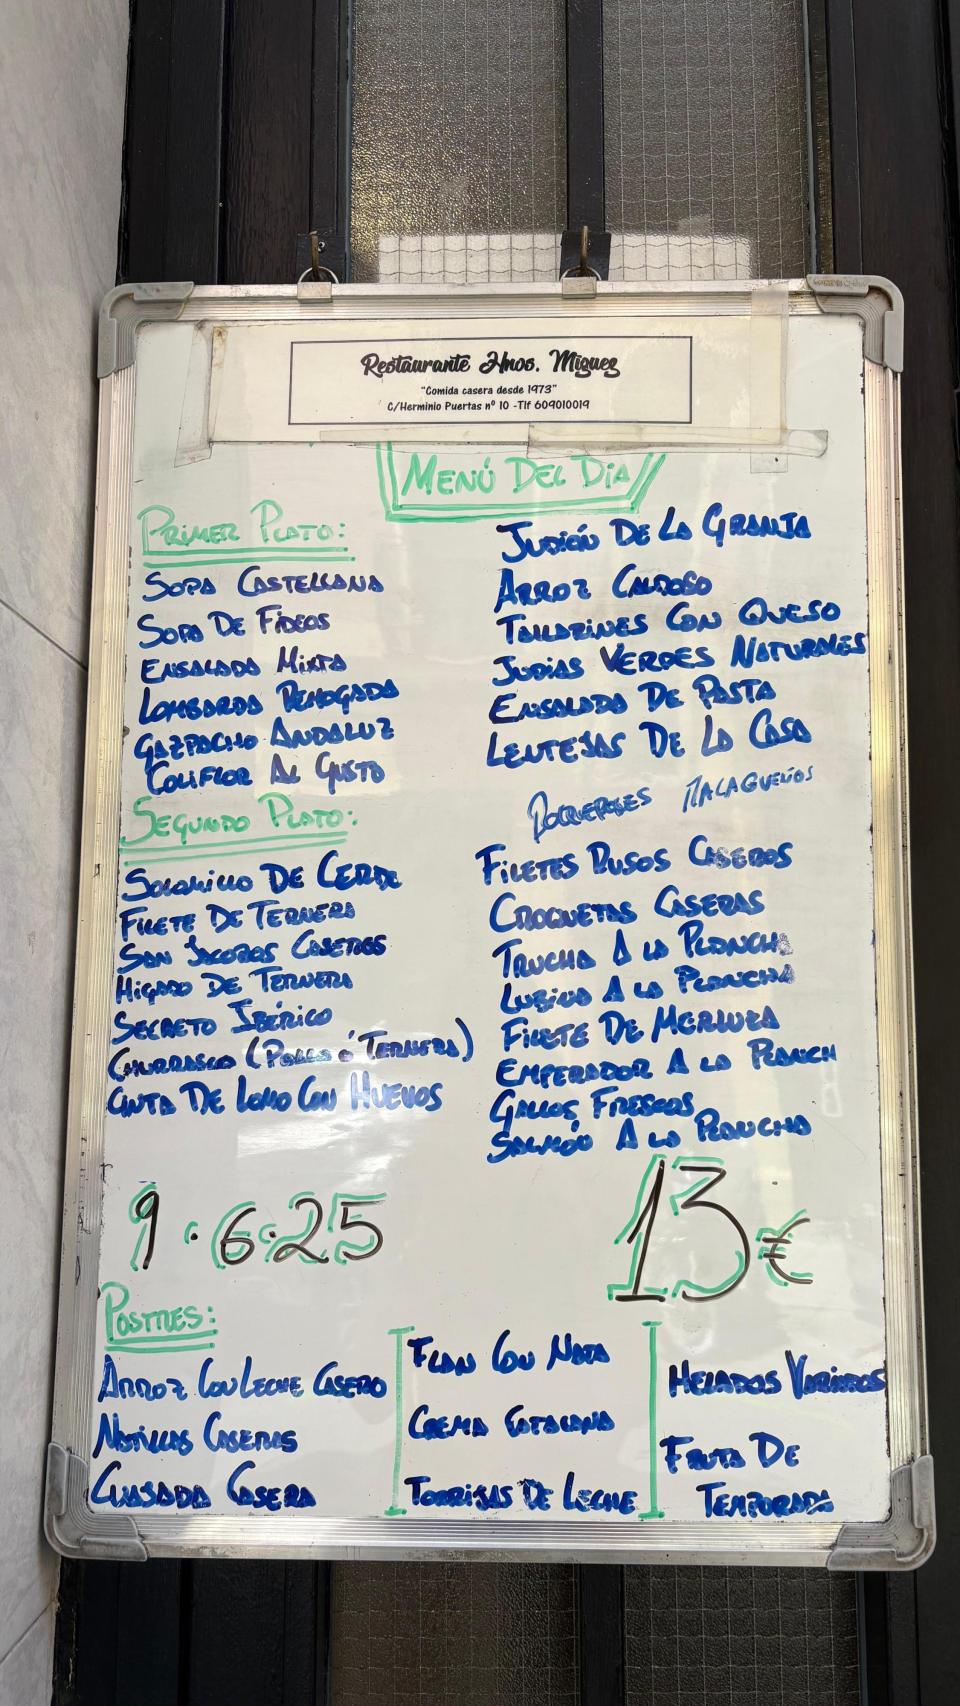 Restaurante Hnos. Miguez
"Comida casera desde 1973"
C/Herminio Puertas nº 10 -Tlf 609010019
MENÚ DEL DIA
PRIMER PLATO:
SOPA CASTELLANA
SOPA DE FIDEOS
ENSALADA MIXTA
LOMBARDA REHOGADA
GAZPACHO ANDALUZ
COLIFLOR AL GUSTO
JUDIÓN DE LA GRANJA
ARROZ CALDOSO
TALLARINES CON QUESO
JUDIAS VERDES NATURALES
ENSALADA DE PASTA
LENTEJAS DE LA CASA
SEGUNDO PLATO:
SOLOMILLO DE CERDO
FILETE DE TERNERA
SAN JACOBOS CASEROS
HIGADO DE TERNERA
SECRETO IBÉRICO
CHURRASCO (POLLO ó TERNERA)
CINTA DE LOMO CON HUEVOS
MALAGUEÑOS
FILETES RUSOS CASEROS
CROQUETAS CASERAS
TRUCHA A LA PLANCHA
LUBINA A LA PLANCHA
FILETE DE MERLUZA
EMPERADOR A LA PLANCH
GALLOS FRESCOS
SALMÓN A LA PLANCHA
9·6·25
13€
POSTRES:
ARROZ CON LECHE CASERO
NATILLAS CASERAS
CUAJADA CASERA
FLAN CON NATA
CREMA CATALANA
TORRIJAS DE LECHE
HELADOS VARIADOS
FRUTA DE
TEMPORADA